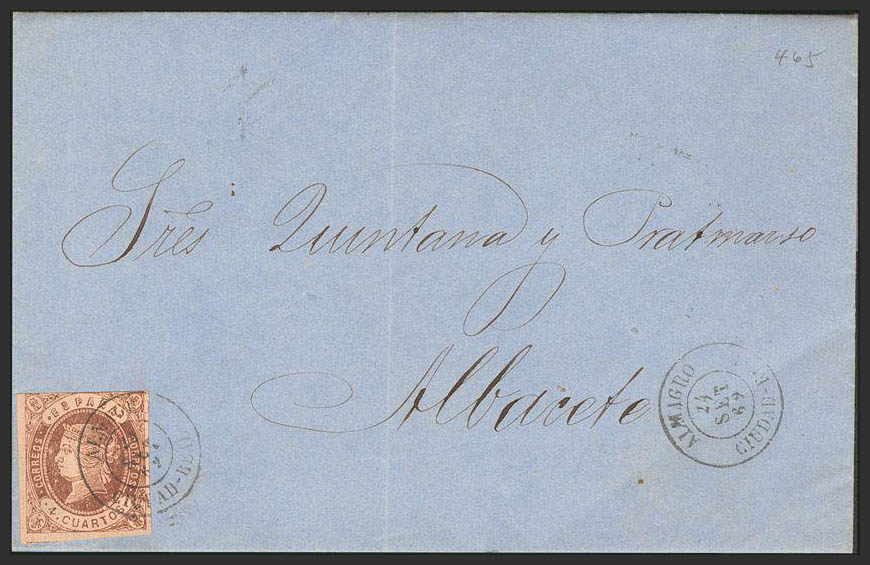 465
Sres Quintana y Pratmarso
Albacete
ALMAGRO
24
SET
62
CIUDAD-R
ESPAÑA
CORREOS
4 CUARTOS